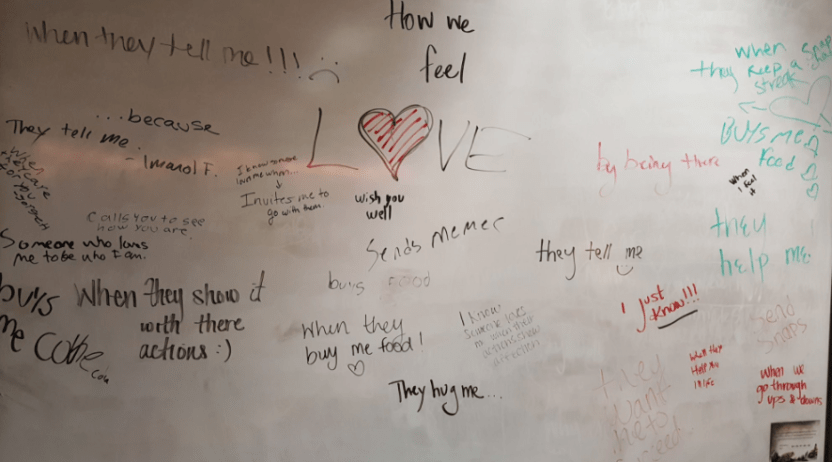 How we
feel
LOVE
When they tell me!!! :(
...because
They tell me
- Imanol F.
When
they are
for you
I know someone
loves me when...
Invites me to
go with them.
wish you
well
Calls you to see
how you are.
Someone who loves
me to be who I am.
Sends memes
buys food
buys
me Coffee
When they show it
worth there
actions :)
When they
buy me food!
I know
someone loves
me when their
actions show
affection
They hug me...
they tell me
by being there
When
they keep a snap
streak
BUYS me
Food
When
I feel
it
they
help me
I just
know!!!
Send
Snaps
they
want
me to
When they
Help me
in life
When we
go through
ups & downs